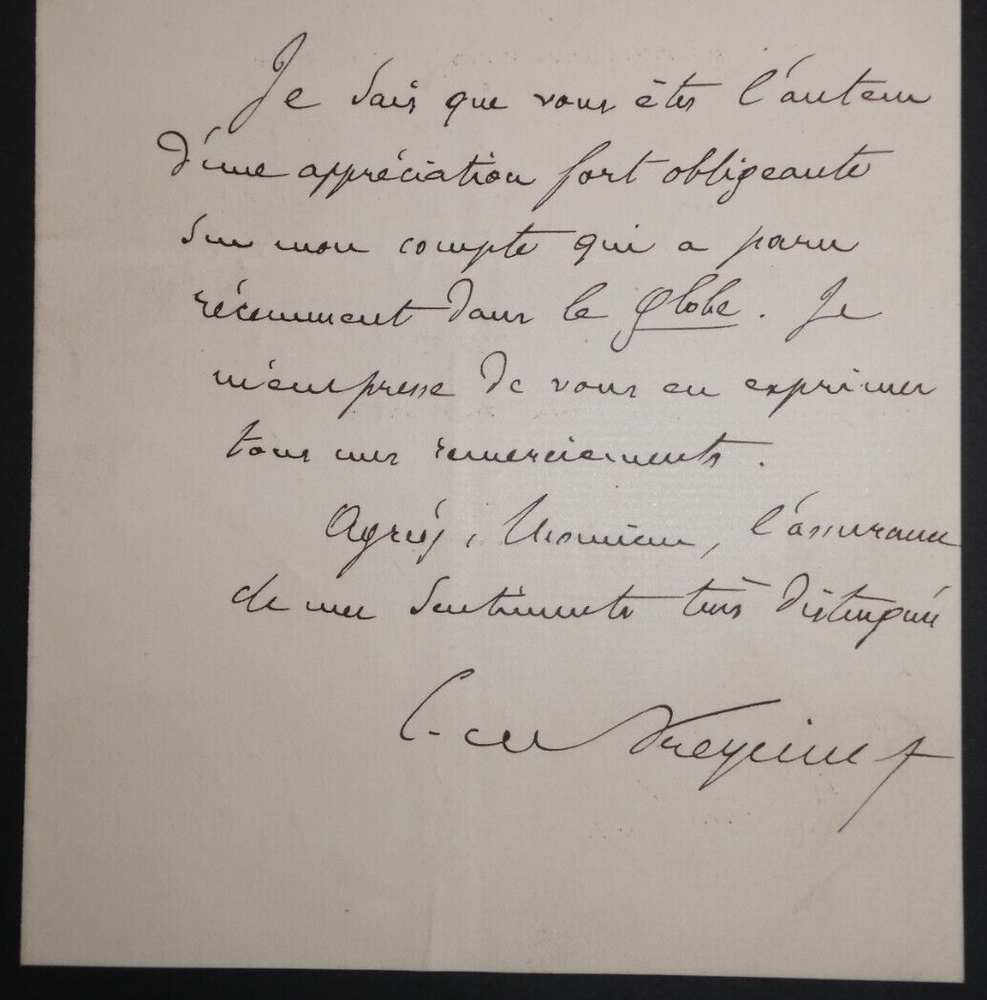 Je sais que vous êtes l'auteur
d'une appréciation fort obligeante
sur mon compte qui a paru
récemment dans le Globe. Je
m'empresse de vous en exprimer
tous mes remerciements.
Agréez, Monsieur, l'assurance
de mes sentiments très distingués
C. de Freycinet